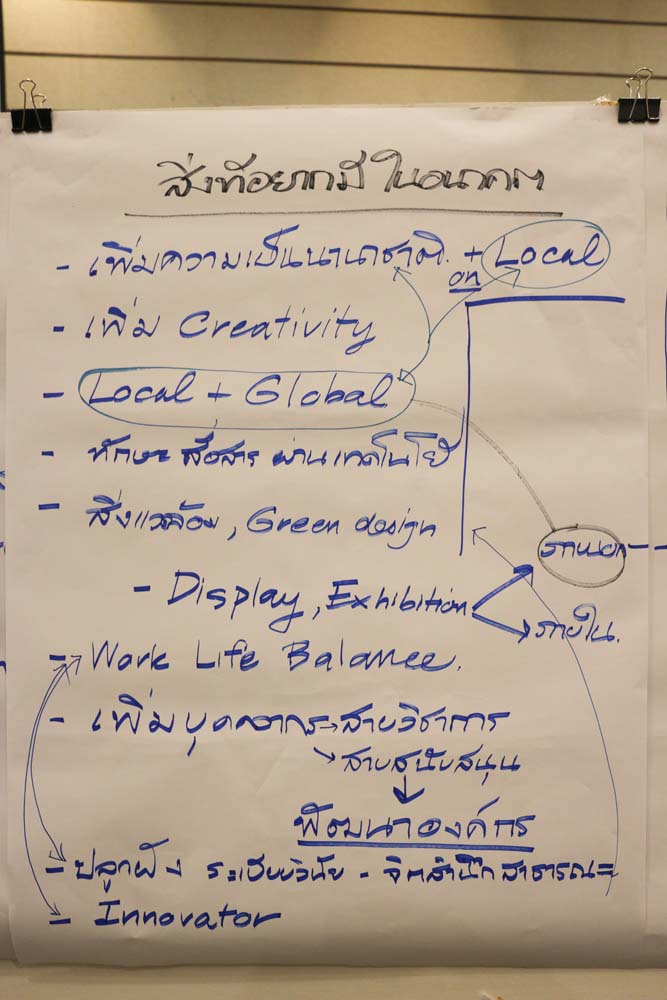 สิ่งที่อยากมี ในอนาคต
- เพิ่มความเป็นนานาชาติ. + Local
on
- เพิ่ม Creativity
- Local + Global
- ทักษะ สื่อสาร ผ่านเทคโนโลยี
- สิ่งแวดล้อม, Green design
- Display, Exhibition
ภายนอก
ภายใน.
- Work Life Balance.
- เพิ่มบุคลากร สายวิชาการ
สายสนับสนุน
พัฒนาองค์กร
- ปลูกฝัง ระเบียบวินัย - จิตสำนึกสาธารณะ
- Innovator